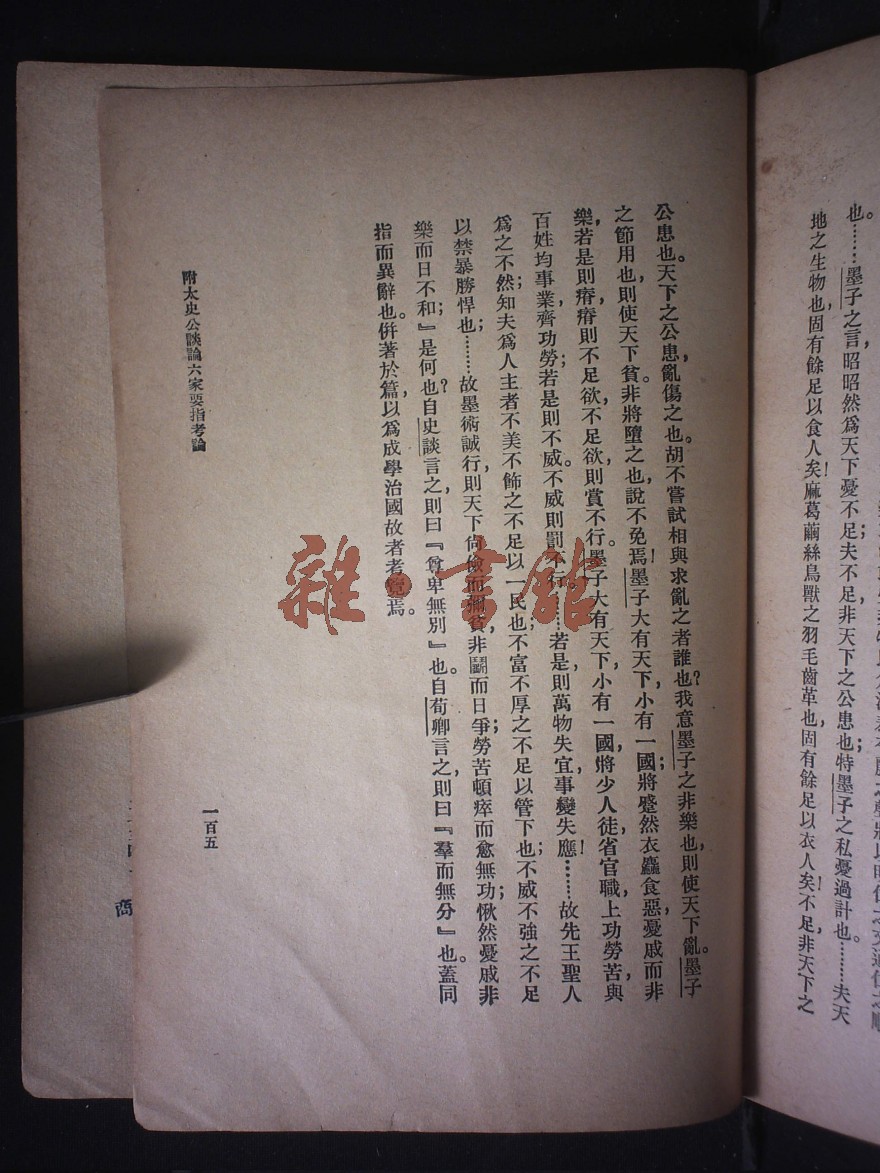 也。……墨子之言昭昭然爲天下憂不足；夫不足，非天下之公患也；特墨子之私憂過計也。………夫天
地之生物也，固有餘足以食人矣！麻葛繭絲鳥獸之羽毛齒革也，固有餘足以衣人矣！不足，非天下之
公患也。天下之公患，亂傷之也。胡不嘗試相與求亂之者誰也？我意墨子之非樂也，則使天下亂。墨子
之節用也，則使天下貧。非將墮之也，說不免焉！墨子大有天下，小有一國；將蹙然衣麤食惡，憂戚而非
樂，若是則瘠，瘠則不足欲，不足欲，則賞不行。墨子大有天下，小有一國，將少人徒，省官職，上功勞苦，與
百姓均事業，齊功勞；若是則不威。不威則罰不行。……若是，則萬物失宜，事變失應！………故先王聖人
爲之不然；知夫爲人主者不美不飾之不足以一民也；不富不厚之不足以管下也；不威不強之不足
以禁暴勝悍也；………故墨術誠行，則天下尙儉而彌貧，非鬭而日爭；勞苦頓瘁而愈無功；愀然憂戚非
樂而日不和；』是何也？自史談言之，則曰『尊卑無別』也。自荀卿言之，則曰『羣而無分』也。蓋同
指而異辭也。倂著於篇，以爲成學治國故者考覽焉。
附太史公談論六家要指考論
一百五
商
雜·書館